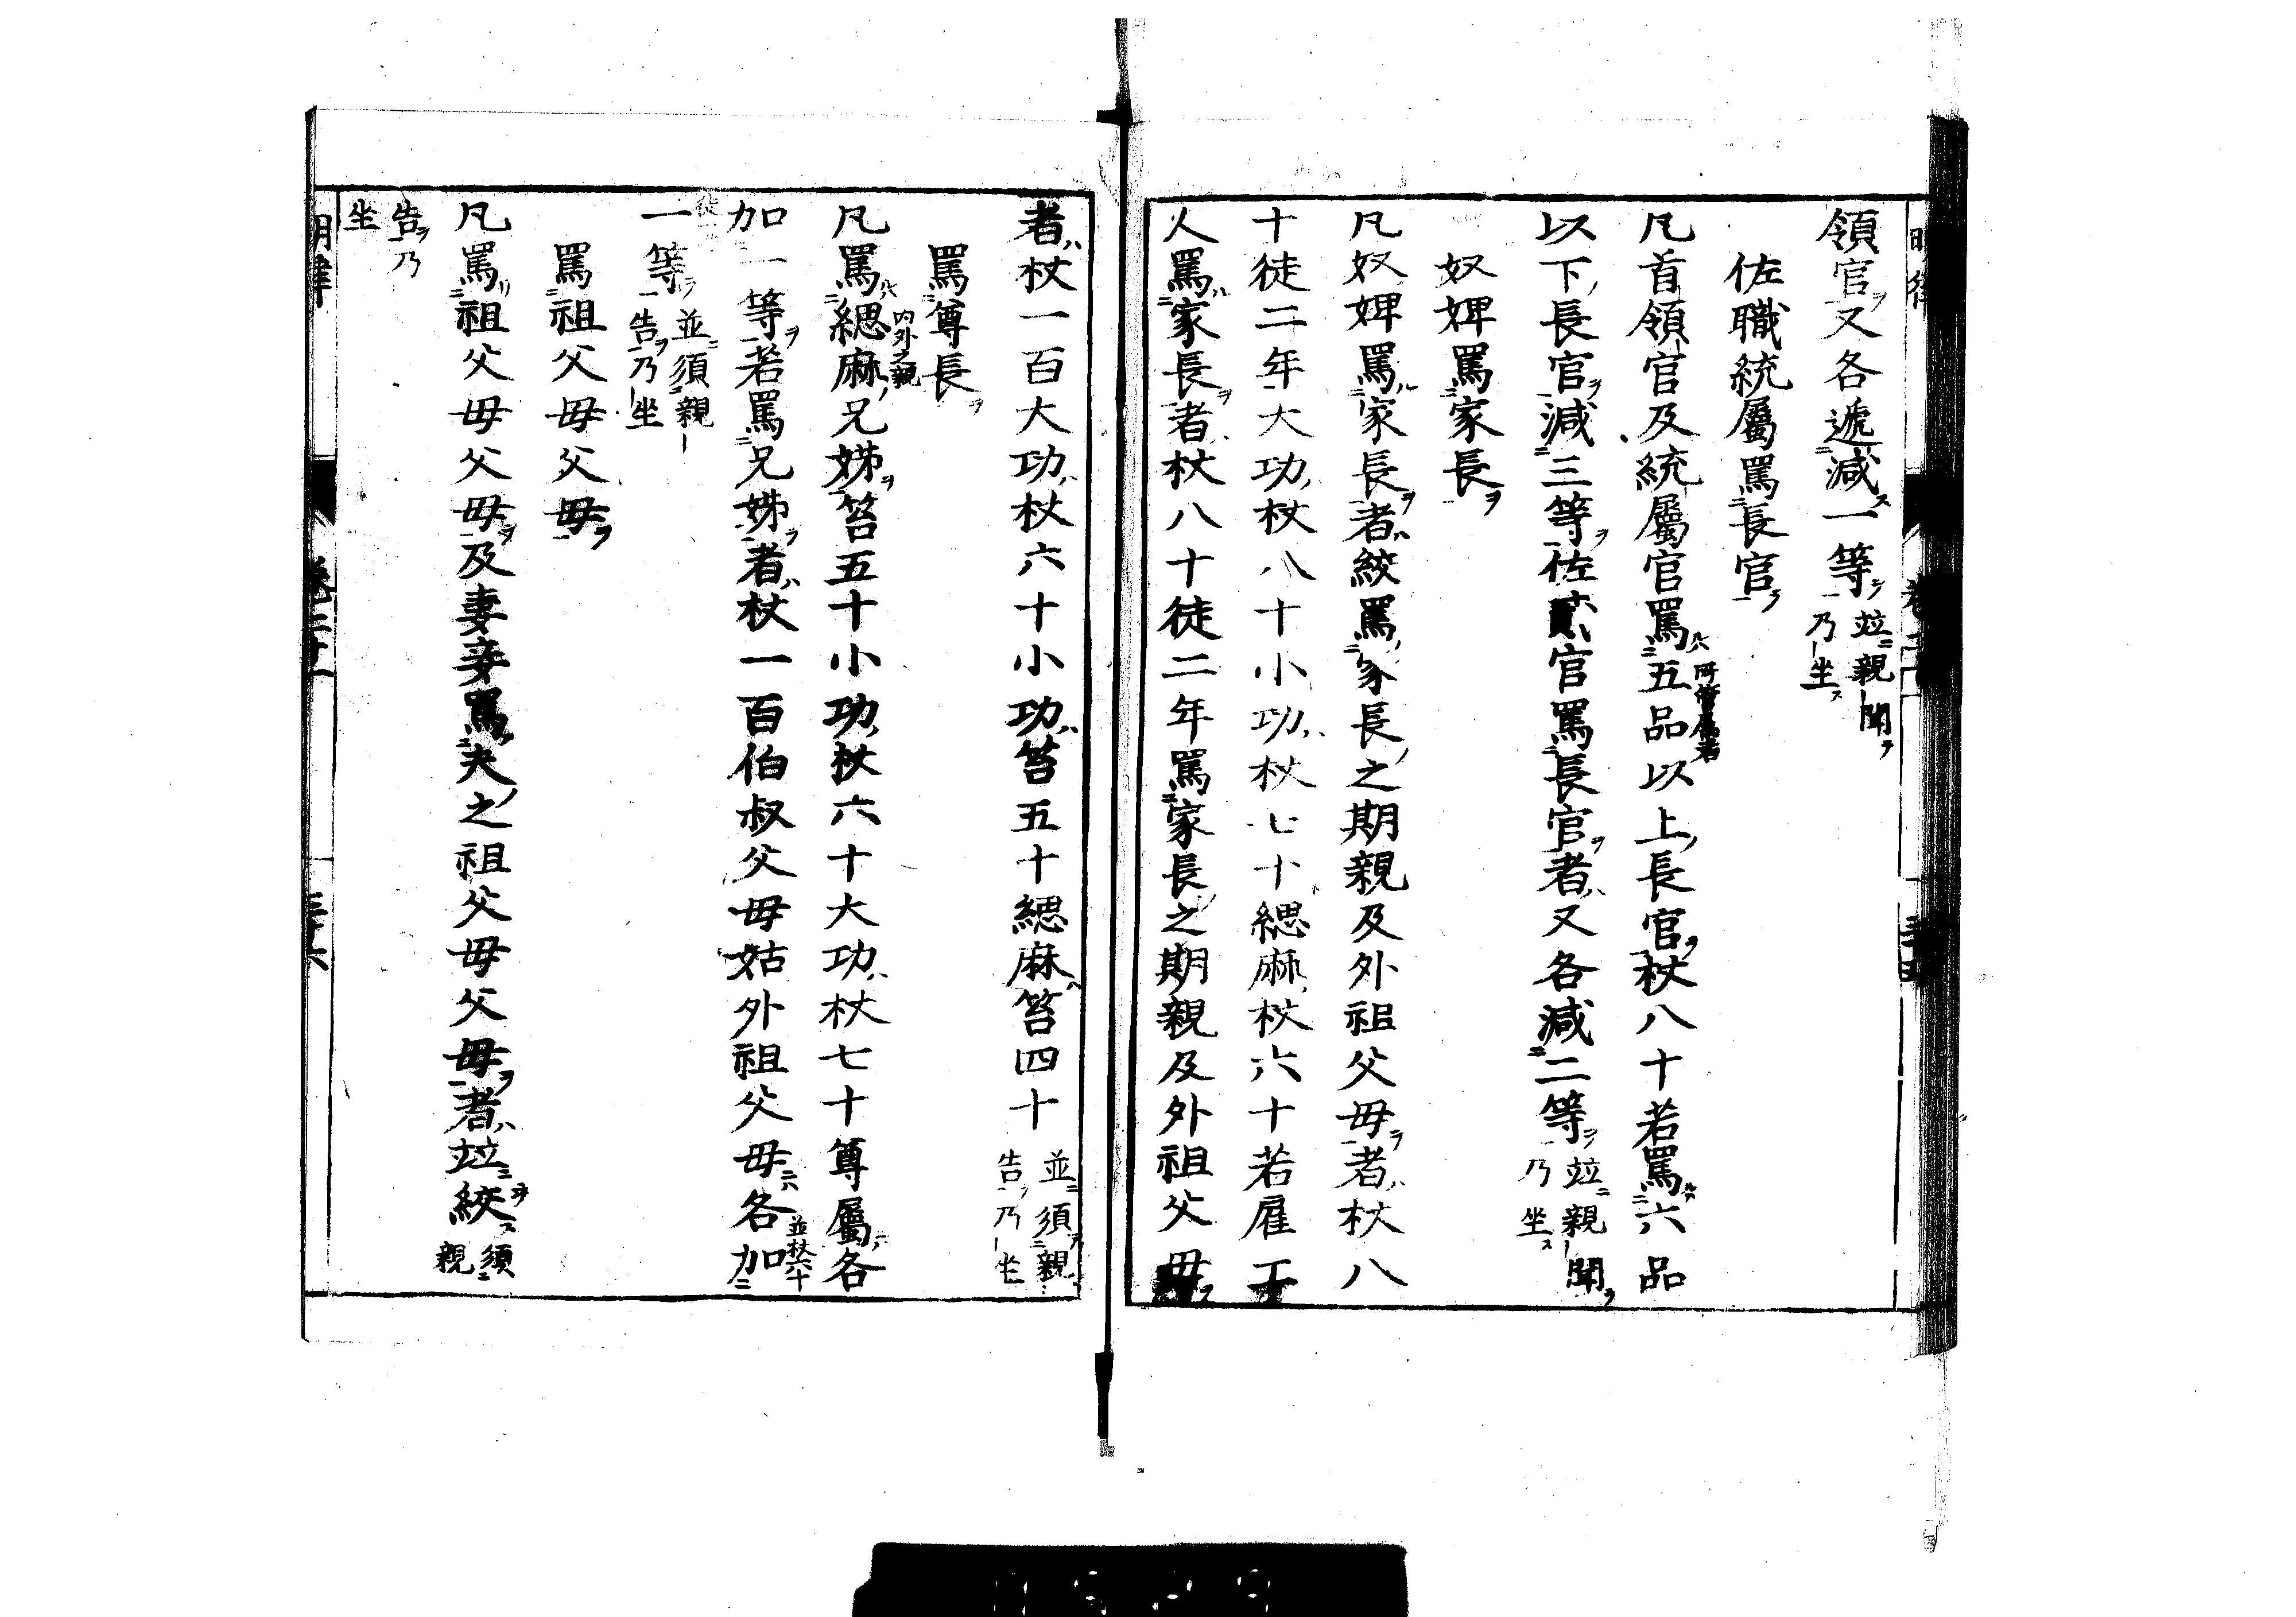 領官又各遞減一等並親聞乃坐
佐職統屬罵長官
凡首領官及統屬官罵五品以上長官杖八十若罵六品
所管屬者
以下長官減三等佐貳官罵長官者又各減二等並親聞乃坐
奴婢罵家長
凡奴婢罵家長者絞罵家長之期親及外祖父母者杖八
十徒二年大功杖八十小功杖七十緦麻杖六十若雇工
人罵家長者杖八十徒二年罵家長之期親及外祖父母
者杖一百大功杖六十小功笞五十緦麻笞四十並須親告乃坐
罵尊長
凡罵緦麻兄姊笞五十小功杖六十大功杖七十尊屬各
內外之親
加一等若罵兄姊者杖一百伯叔父母姑外祖父母各加
並杖六十
一等並須親告乃坐
罵祖父母父母
凡罵祖父母父母及妻妾罵夫之祖父母父母者並絞須親
告乃坐